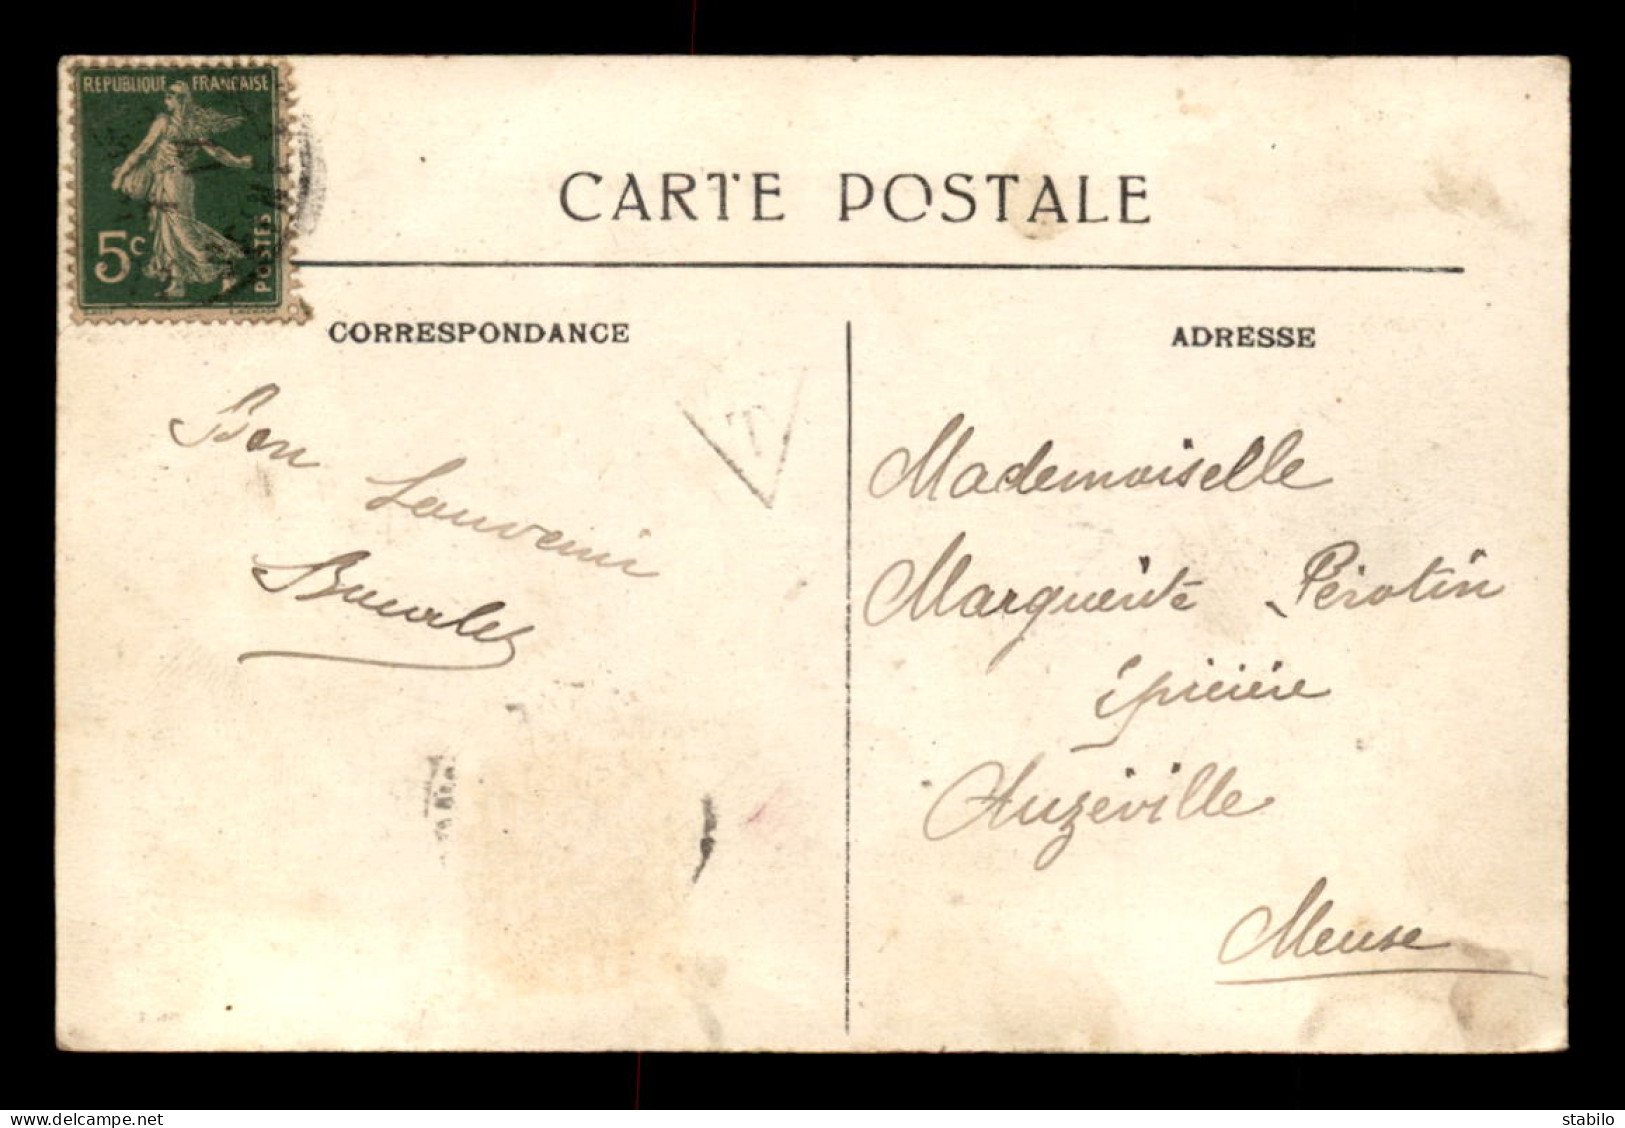 REPUBLIQUE FRANCAISE
5c
POSTES
CARTE POSTALE
CORRESPONDANCE
Bon
Souvenir
T
ADRESSE
Mademoiselle
Marguerite Pérotin
épicière
Auzéville
Meuse
stabilo